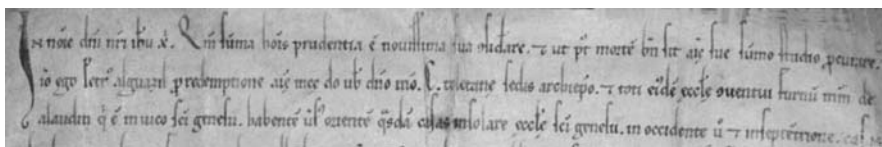 In noīe dn̄i nr̄i ih̄u xp̄i. Q̄m sūma hoīs prudentia ē novissima sua ꝯsid̄are. ⁊ ut pꝰ mortē bn̄ sit aīe sue sūmo studio ꝓcurare.
iō ego Petrꝰ alguazil ꝓ redemptione aīe mee do vob̄ dn̄o mō. C. toletane sedis archiep̄o. ⁊ toti eidē eccl̄e ꝯventui furnū mm̄ de
alauditi q̄ ē in vico sc̄i genesii. habentē ꝯvenientē q̄sdā casas in solare eccl̄e sc̄i genesii. in occidente v̄ ⁊ in septētrione.